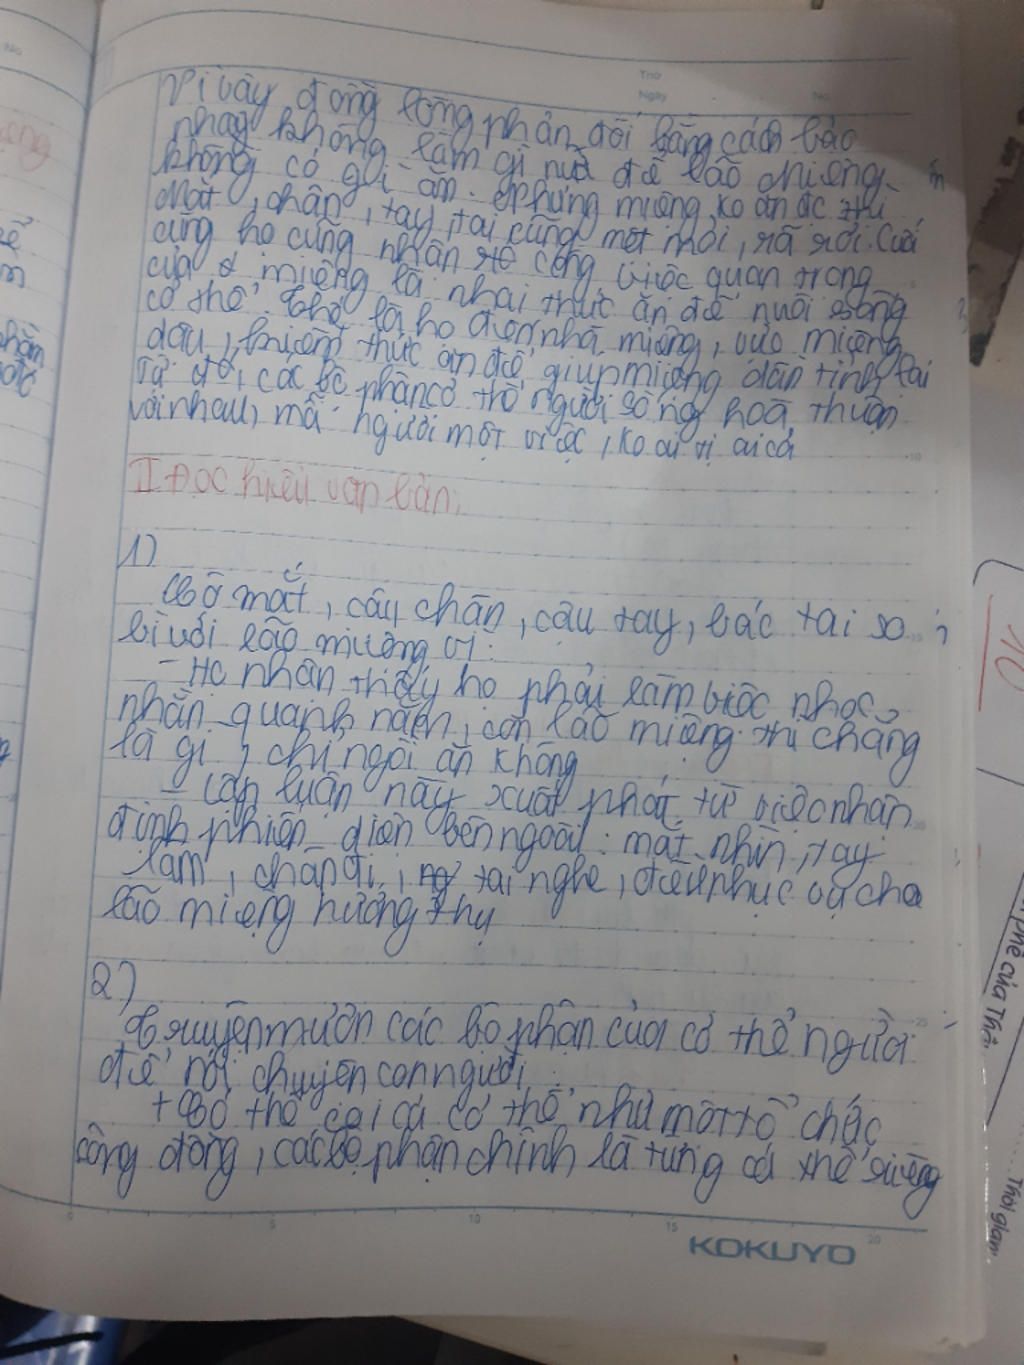 Vì vậy đồng lòng phản đối bằng cách bảo
nhau không làm gì nữa để lão Miệng
không có gì ăn. Nhưng miệng ko ăn đc thì
Mắt, chân, tay, tai cũng mệt mỏi, rã rời. Cuối
cùng họ cũng nhận rõ công việc quan trọng
của miệng là nhai thức ăn để nuôi sống
cơ thể. Thế là họ đến nhà miệng, vực miệng
dậy, kiếm thức ăn để giúp miệng dần tỉnh lại
Từ đó, các bộ phận cơ thể người sống hoà thuận
với nhau, mỗi người một việc, ko ai tị ai cả
II Đọc hiểu văn bản.
1)
Cô mắt, cậu chân, cậu tay, bác tai so
bì với lão miệng vì:
- Họ nhận thấy họ phải làm việc nhọc
nhằn quanh năm, còn lão miệng thì chẳng
là gì, chỉ ngồi ăn không
- Lập luận này xuất phát từ việc nhận
định phiến diện bên ngoài: mắt nhìn, tay
làm, chân đi, tai nghe, đều phục vụ cho
lão miệng hưởng thụ
2)
Truyện mượn các bộ phận của cơ thể người
để nói chuyện con người
+ Có thể coi cả cơ thể như một tổ chức
cộng đồng, các bộ phận chính là từng cá thể riêng
KOKUYO
0 5 10 15 20
Thứ
Ngày
No
phê của Thầ
Thời gian
10